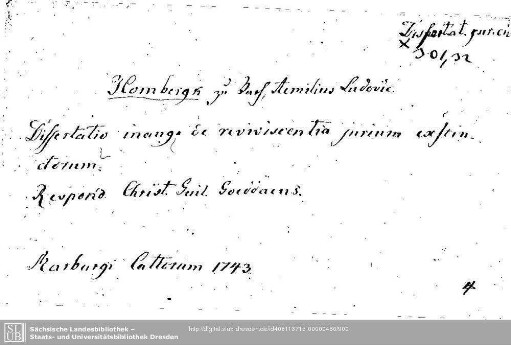 Dissertat. jur. civ.
× 301,32
Hombergk zu Vach, Aemilius Ludovic.
Dissertatio inaug. de reviviscentia jurium exstin-
ctorum.
Respond. Christ. Guil. Goeddaeus.
Marburgi Cattorum 1743
4
SLUB
Sächsische Landesbibliothek –
Staats- und Universitätsbibliothek Dresden